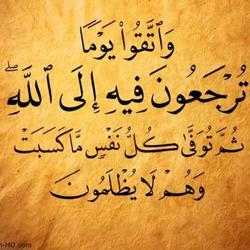 وَٱتَّقُوا۟ يَوْمًا
تُرْجَعُونَ فِيهِ إِلَى ٱللَّهِ ۖ
ثُمَّ تُوَفَّىٰ كُلُّ نَفْسٍ مَّا كَسَبَتْ
وَهُمْ لَا يُظْلَمُونَ
-HD.com